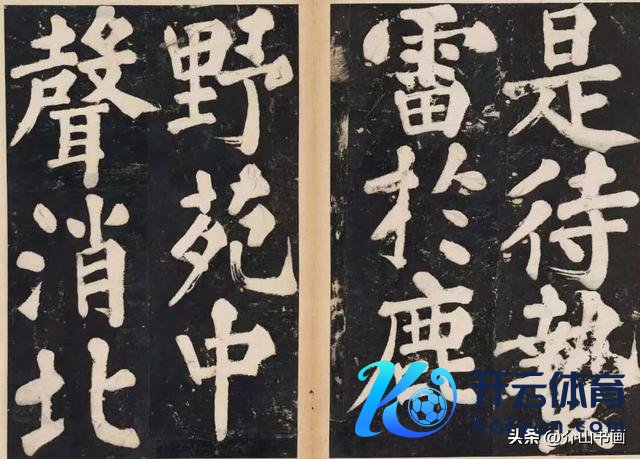 是待
雷於鹿
野苑中
聲消北
开云体育
kaiyun.com
头条 @介山书画